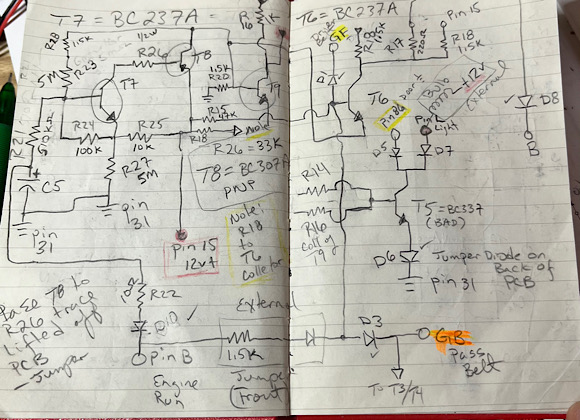 T7 = BC237A
R28
1.5K
1/2w
R26
T8
R23
5M
T7
1.5K
R20
T9
R15
47K
R18
Note
R21
R24
100K
R25
10K
R27
5M
C5
R26 = 33K
T8 = BC307A
PNP
pin
31
pin
31
Pin 15
12v+
Note:
R18
to
T6
collector
Base T8 to
R26 trace
Lifted off
PCB
Jumper
R22
pin B
Engine
Run
External
1.5K
Jumper
(Front
T6 = BC237A
GF
R17
220Ω
Pin 15
R18
1.5K
T6
Pin 86
Door
Bulb
+12v
External
Pin
Light
D8
B
D5
D7
R14
R16
coll of
T9
T5 = BC337
(BAD)
D6
Jumper Diode on
Back of
PCB
Pin 31
D3
GB
Pass
Belt
To T3/T4